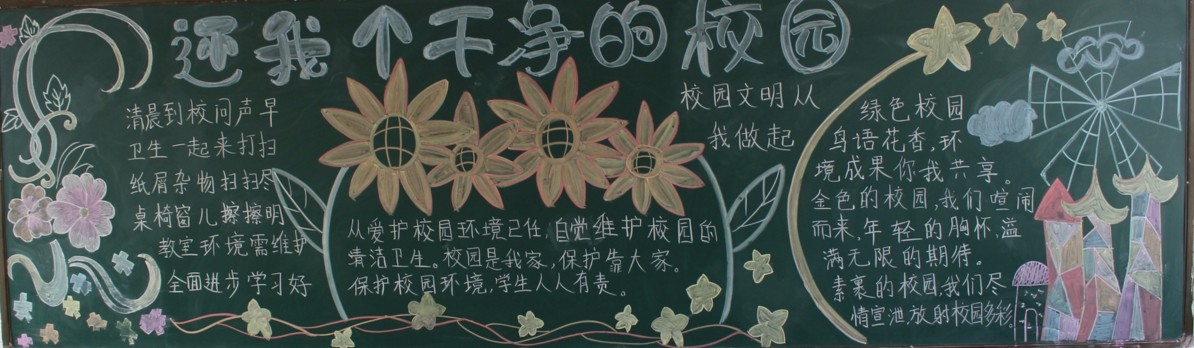 还我个干净的校园
清晨到校问声早
卫生一起来打扫
纸屑杂物扫扫尽
桌椅窗儿擦擦明
教室环境需维护
全面进步学习好
从爱护校园环境己任,自觉维护校园的
清洁卫生。校园是我家,保护靠大家。
保护校园环境,学生人人有责。
校园文明从
我做起
绿色校园
鸟语花香,环
境成果你我共享。
金色的校园,我们喧闹
而来,年轻的胸怀,溢
满无限的期待。
素裹的校园,我们尽
情宣泄,放射校园多彩